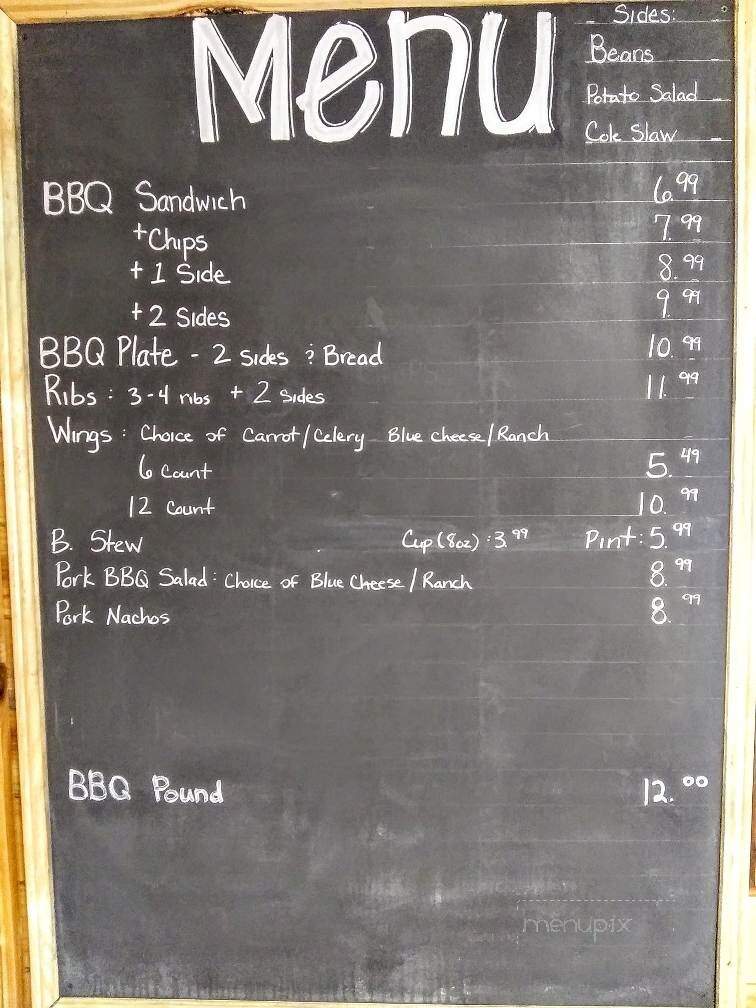 Menu
Sides:
Beans
Potato Salad
Cole Slaw
BBQ Sandwich 6.99
+Chips 7.99
+ 1 Side 8.99
+ 2 Sides 9.99
BBQ Plate - 2 sides & Bread 10.99
Ribs: 3-4 ribs + 2 Sides 11.99
Wings: Choice of Carrot/Celery Blue cheese/Ranch
6 Count 5.49
12 Count 10.99
B. Stew Cup (8oz): 3.99 Pint: 5.99
Pork BBQ Salad: Choice of Blue Cheese/Ranch 8.99
Pork Nachos 8.99
BBQ Pound 12.00
menupix